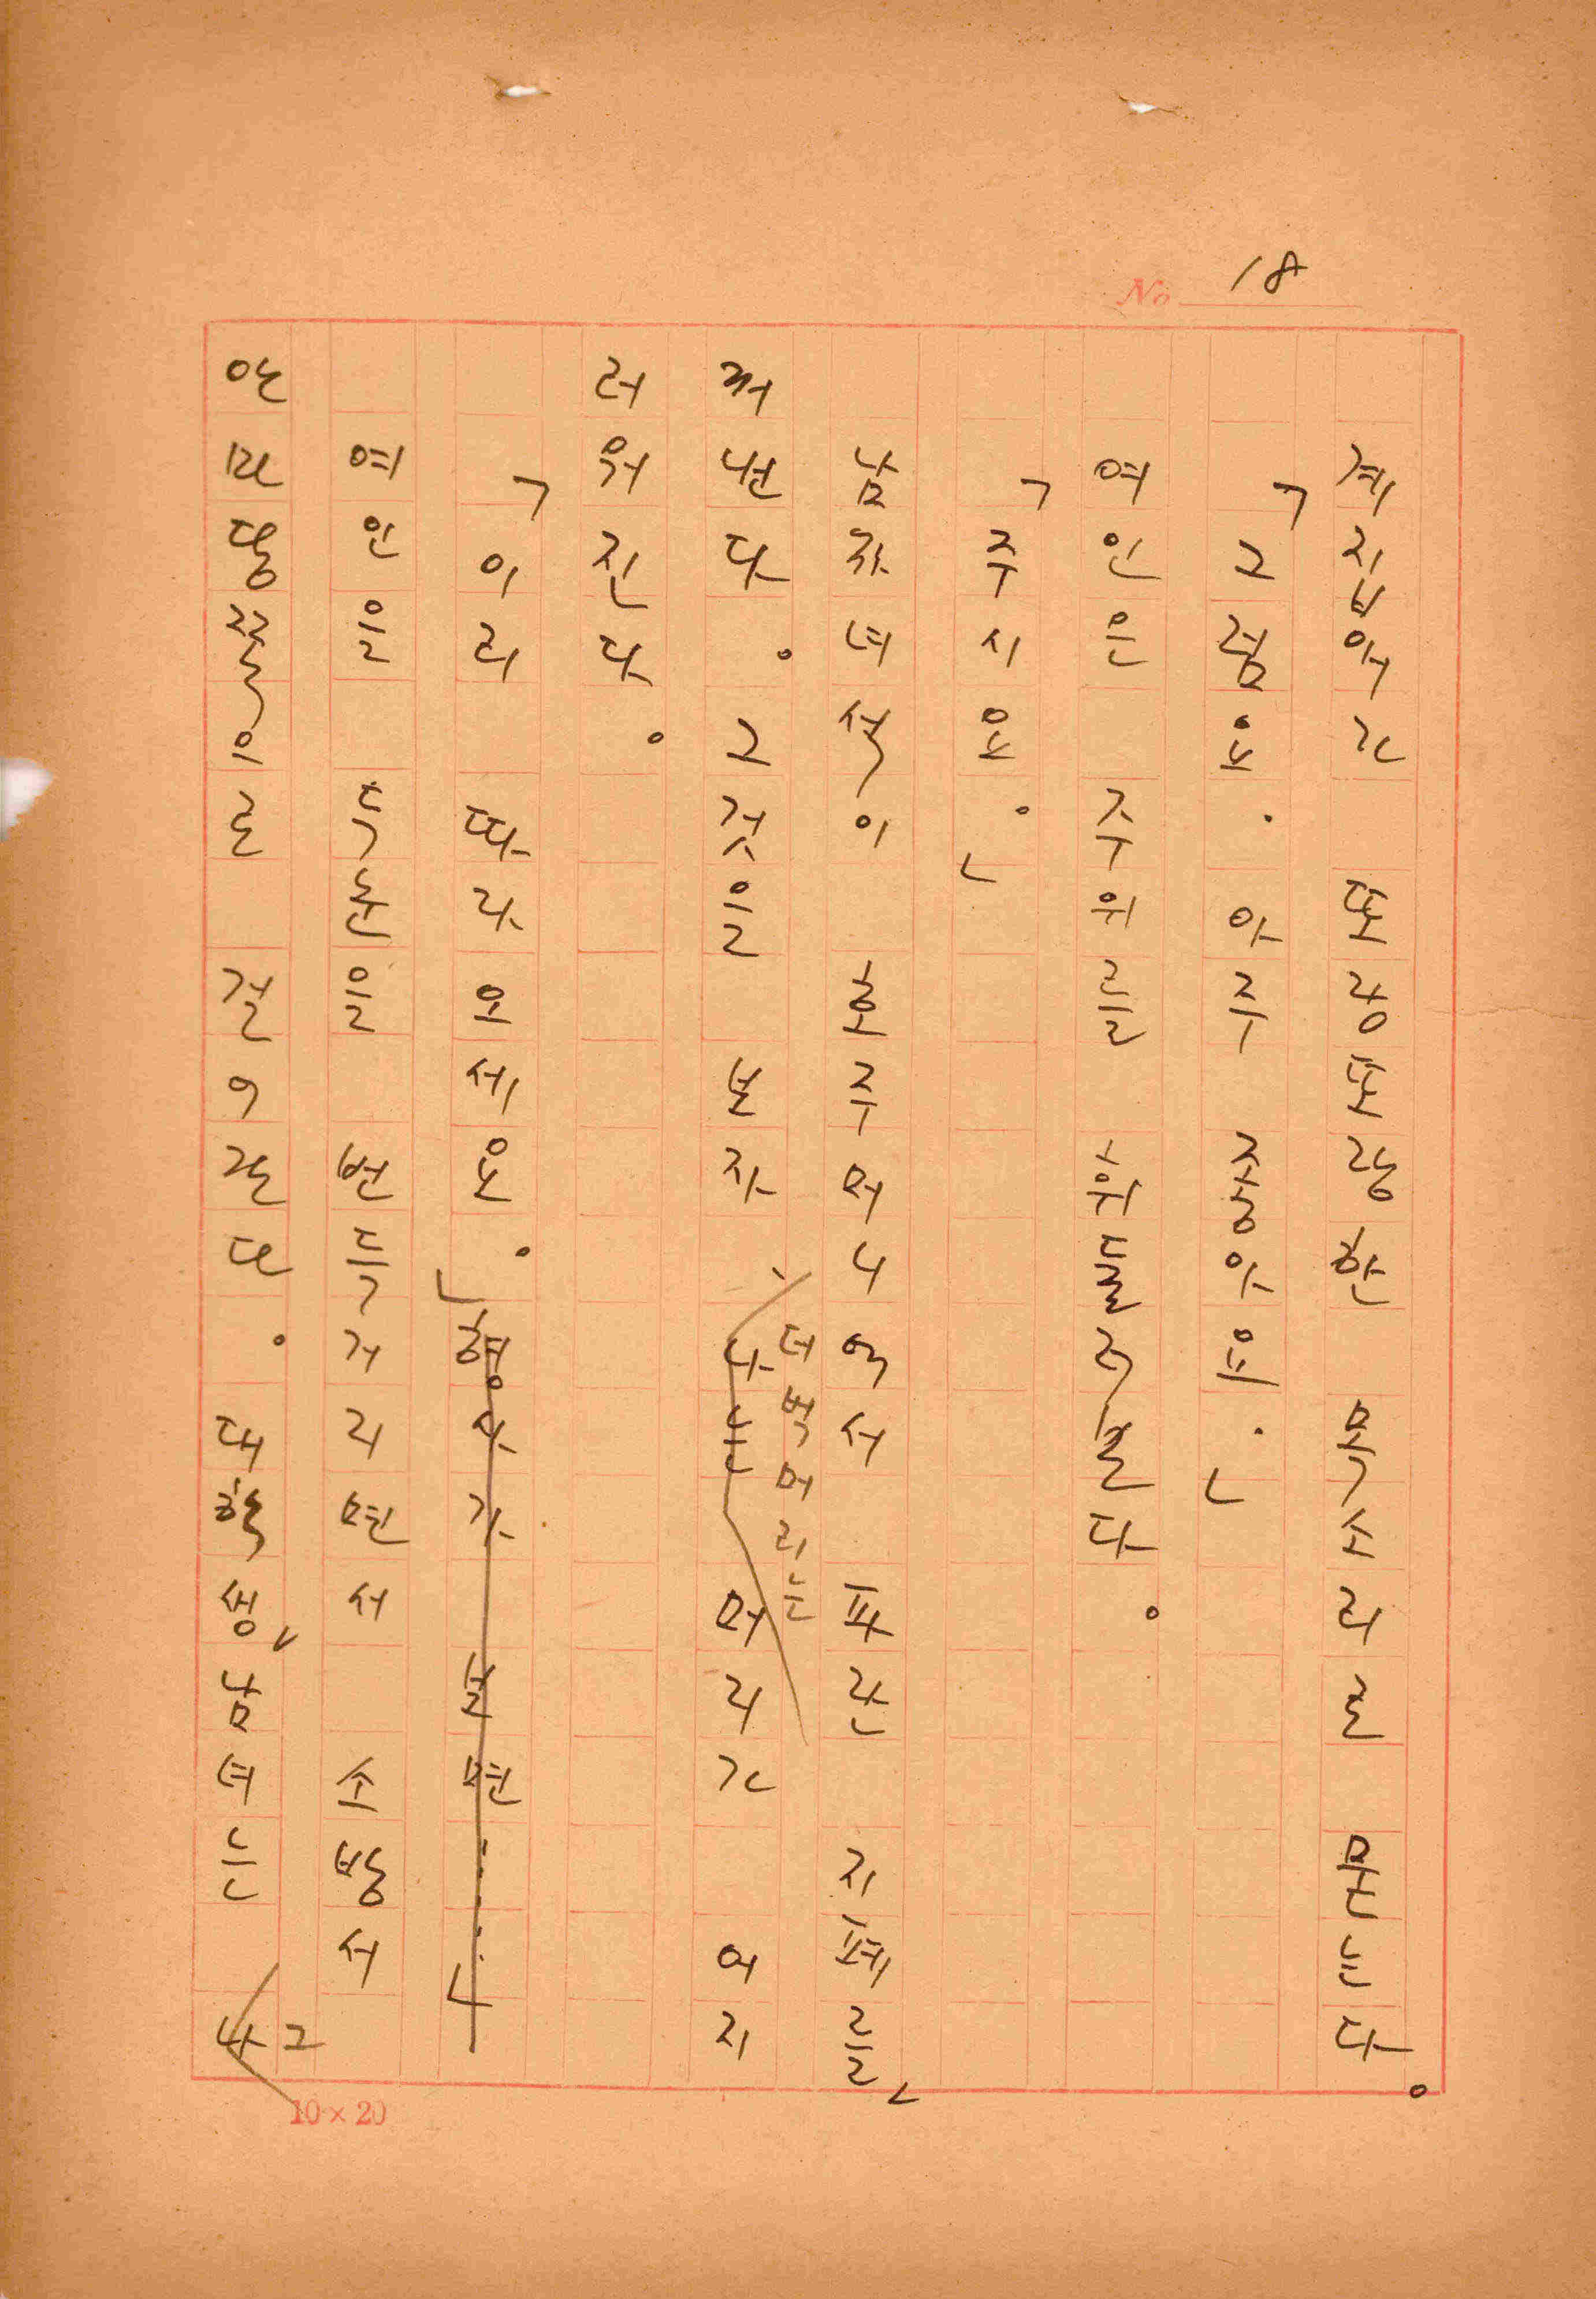 No 18
계집애가 또랑또랑한 목소리로 묻는다。
「그럼요. 아주 좋아요.」
여인은 주위를 휘둘러본다。
「주시오。」
남자녀석이 호주머니에서 파란 지폐를,
꺼낸다。그것을 보자、나는 머리가 어지
더벅머리는
러워진다。
「이리 따라오세요。」형사가 보면……」
여인은 두눈을 번득거리면서 소방서
안마당쪽으로 걸어간다。대학생, 남녀는 나
그
10×20